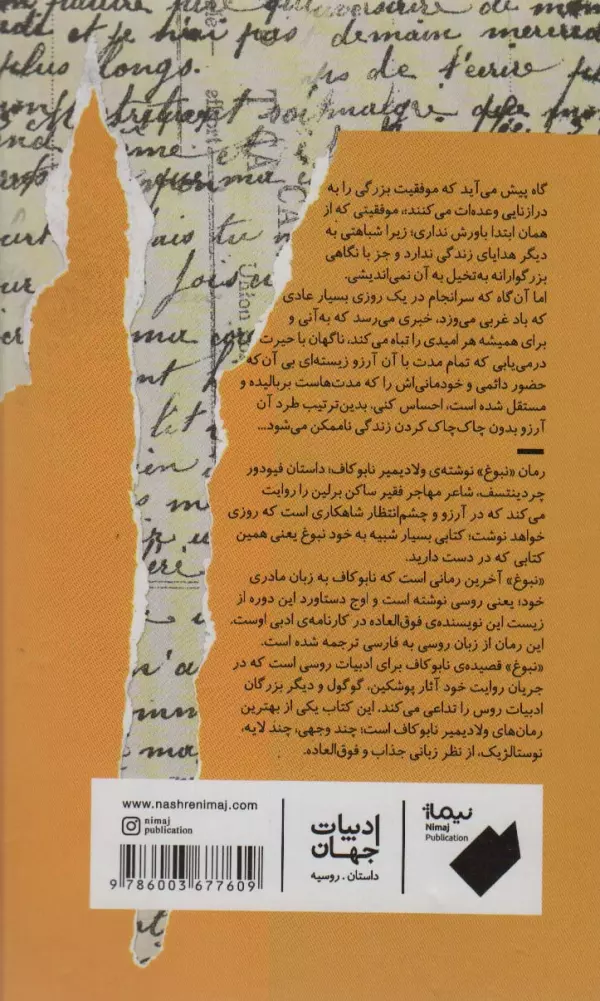 plus longs.
ps de t'écrire
گاه پیش می‌آید که موفقیت بزرگی را به
درازنایی وعده‌ات می‌کنند؛، موفقیتی که از
همان ابتدا باورش نداری؛ زیرا شباهتی به
دیگر هدایای زندگی ندارد و جز با نگاهی
بزرگوارانه به‌تخیل به آن نمی‌اندیشی.
اما آن‌گاه که سرانجام در یک روزی بسیار عادی
که باد غربی می‌وزد، خبری می‌رسد که به‌آنی و
برای همیشه هر امیدی را تباه می‌کند، ناگهان با حیرت
درمی‌یابی که تمام مدت با آن آرزو زیسته‌ای بی آن‌که
حضور دائمی و خودمانی‌اش را که مدت‌هاست بربالیده و
مستقل شده است، احساس کنی. بدین‌ترتیب طرد آن
آرزو بدون چاک‌چاک کردن زندگی ناممکن می‌شود...
رمان «نبوغ» نوشته‌ی ولادیمیر نابوکاف؛ داستان فیودور
چردینتسف، شاعر مهاجر فقیر ساکن برلین را روایت
می‌کند که در آرزو و چشم‌انتظار شاهکاری است که روزی
خواهد نوشت؛ کتابی بسیار شبیه به خود نبوغ یعنی همین
کتابی که در دست دارید.
«نبوغ» آخرین رمانی است که نابوکاف به زبان مادری
خود؛ یعنی روسی نوشته است و اوج دستاورد این دوره از
زیست این نویسنده‌ی فوق‌العاده در کارنامه‌ی ادبی اوست.
این رمان از زبان روسی به فارسی ترجمه شده است.
«نبوغ» قصیده‌ی نابوکاف برای ادبیات روسی است که در
جریان روایت خود آثار پوشکین، گوگول و دیگر بزرگان
ادبیات روس را تداعی می‌کند. این کتاب یکی از بهترین
رمان‌های ولادیمیر نابوکاف است؛ چند وجهی، چند لایه،
نوستالژیک، از نظر زبانی جذاب و فوق‌العاده.
نیماژ
Nimaj
Publication
ادبیات
جهان
داستان . روسیه
www.nashrenimaj.com
nimaj
publication
9 786003 677609